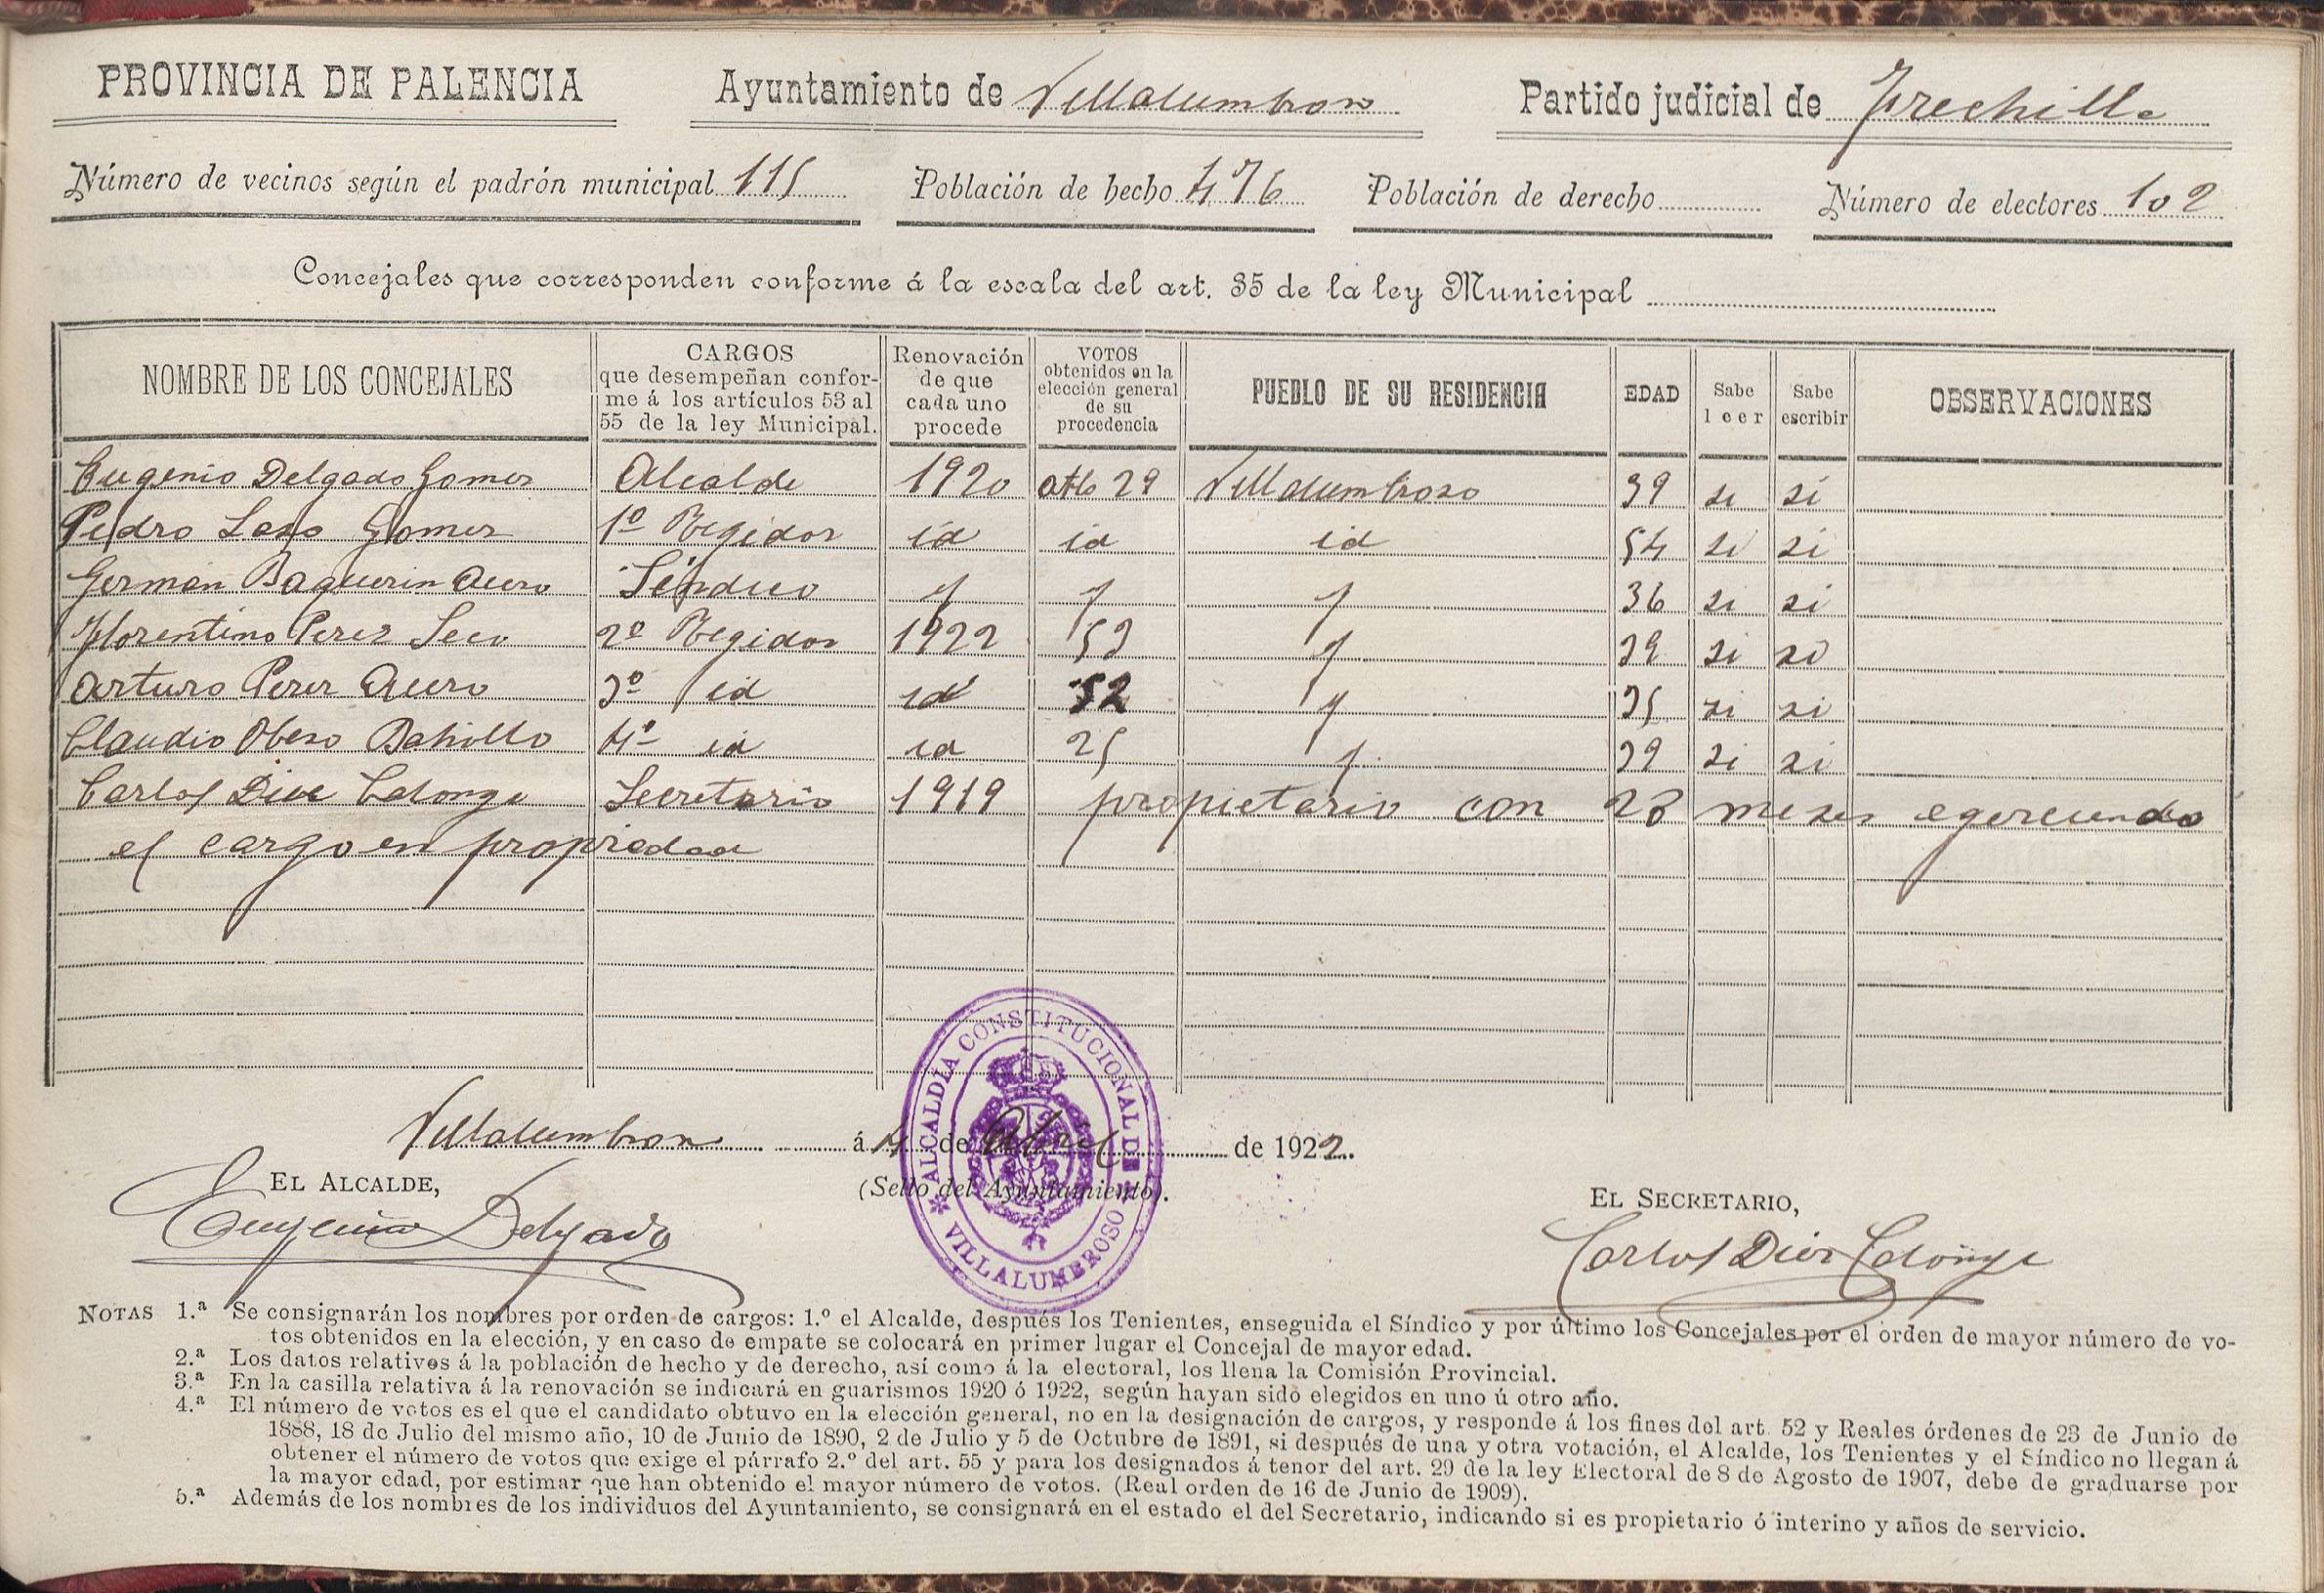 PROVINCIA DE PALENCIA Ayuntamiento de Villalumbroso Partido judicial de Frechilla
Número de vecinos según el padrón municipal 115 Población de hecho 476 Población de derecho Número de electores 102
Concejales que corresponden conforme á la escala del art. 35 de la ley Municipal
NOMBRE DE LOS CONCEJALES CARGOS que desempeñan conforme á los artículos 53 al 55 de la ley Municipal. Renovación de que cada uno procede VOTOS obtenidos en la elección general de su procedencia PUEBLO DE SU RESIDENCIA EDAD Sabe leer Sabe escribir OBSERVACIONES
Eugenio Delgado Gomez Alcalde 1920 atlo 29 Villalumbroso 39 si si
Pedro Laso Gomez 1º Regidor id id id 54 si si
German Baquerin Acero Sindico 36 si si
Florentino Perez Seco 2º Regidor 1922 53 39 si si
Arturo Perez Acero 3º id id 52 35 si si
Claudio Obeso Bahillo 4º id id 25 39 si si
Carlos Diez Calonge Secretario 1919 propietario con 28 meses egerciendo
el cargo en propiedad
Villalumbroso á 4 de Abril de 1922.
ALCALDÍA CONSTITUCIONAL DE VILLALUMBROSO
EL ALCALDE, (Sello del Ayuntamiento). EL SECRETARIO,
Eugenio Delgado Carlos Diez Calonge
NOTAS 1.ª Se consignarán los nombres por orden de cargos: 1.º el Alcalde, después los Tenientes, enseguida el Síndico y por último los Concejales por el orden de mayor número de vo-
tos obtenidos en la elección, y en caso de empate se colocará en primer lugar el Concejal de mayor edad.
2.ª Los datos relativos á la población de hecho y de derecho, así como á la electoral, los llena la Comisión Provincial.
3.ª En la casilla relativa á la renovación se indicará en guarismos 1920 ó 1922, según hayan sido elegidos en uno ú otro año.
4.ª El número de votos es el que el candidato obtuvo en la elección general, no en la designación de cargos, y responde á los fines del art. 52 y Reales órdenes de 23 de Junio de
1888, 18 de Julio del mismo año, 10 de Junio de 1890, 2 de Julio y 5 de Octubre de 1891, si después de una y otra votación, el Alcalde, los Tenientes y el Síndico no llegan á
obtener el número de votos que exige el párrafo 2.º del art. 55 y para los designados á tenor del art. 29 de la ley Electoral de 8 de Agosto de 1907, debe de graduarse por
la mayor edad, por estimar que han obtenido el mayor número de votos. (Real orden de 16 de Junio de 1909).
5.ª Además de los nombres de los individuos del Ayuntamiento, se consignará en el estado el del Secretario, indicando si es propietario ó interino y años de servicio.